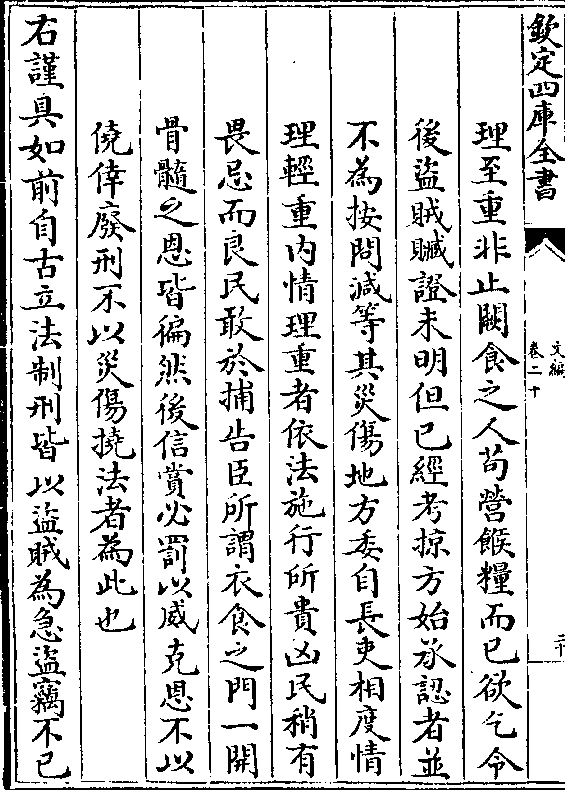 欽定四庫全書
文編
卷二十
理至重非止闕食之人苟營餱糧而已欲乞今
後盜賊贓證未明但已經考掠方始承認者並
不為按問減等其災傷地方委自長吏相度情
理輕重內情理重者依法施行所貴凶民稍有
畏忌而良民敢於捕告臣所謂衣食之門一開
骨髓之恩皆徧然後信賞必罰以威克恩不以
僥倖廢刑不以災傷撓法者為此也
右謹具如前自古立法制刑皆以盜賊為急盜竊不已